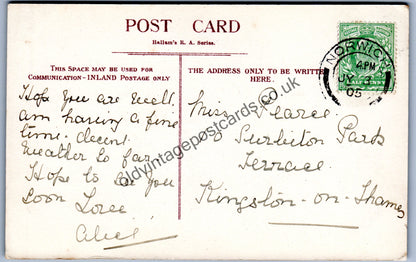 POST CARD
Hallam's R. A. Series.
THIS SPACE MAY BE USED FOR
COMMUNICATION - INLAND POSTAGE ONLY
THE ADDRESS ONLY TO BE WRITTEN
HERE.
NORWICH
4.PM
JY 3
05
Hope you are well.
am having a fine
time. decent
weather so far
Hope to see you
soon Love
Alice
Miss Pearce
Surbiton Park
Terrace
Kingston-on-Thames
oldvintagepostcards.co.uk